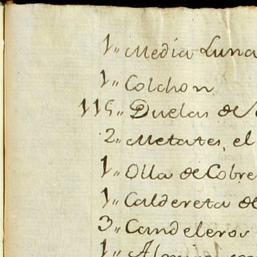 1,, Media Luna
1,, Colchon
115,, Duelas de
2,, Metates, el
1,, Olla de Cobre
1,, Caldereta de
3,, Candeleros
1,,